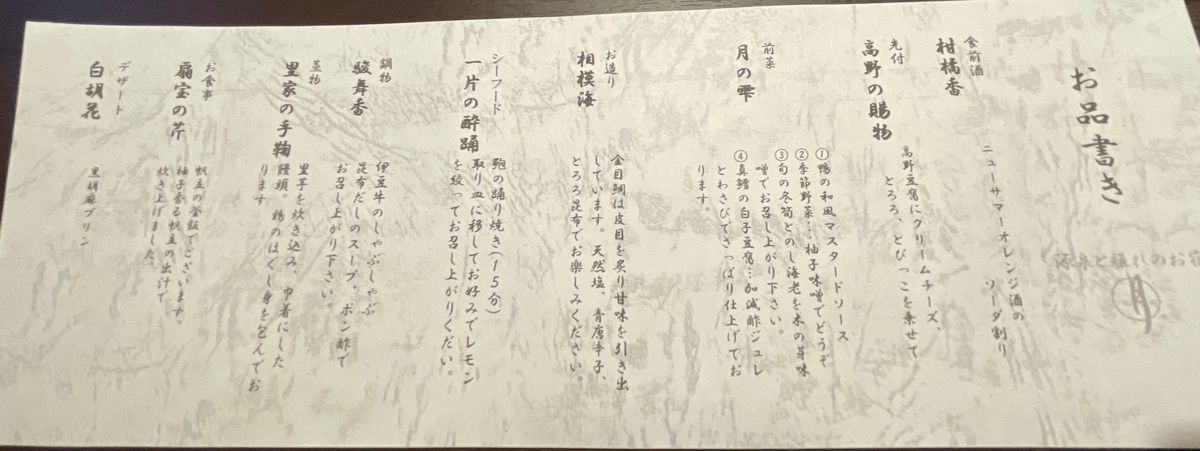 お品書き
食前酒
柑橘香
ニューサマーオレンジ酒の
ソーダ割り
先付
高野の賜物
高野豆腐にクリームチーズ、
とろろ、とびっこを乗せて
前菜
月の雫
①鴨の和風マスタードソース
②季節野菜…柚子味噌でどうぞ
③旬の冬筍とのし海老を木の芽味
噌でお召し上がり下さい。
④真鱈の白子豆腐…加減酢ジュレ
とわさびでさっぱり仕上げてお
ります。
お造り
相模海
金目鯛は皮目を炙り甘味を引き出
しています。天然塩、青唐辛子、
とろろ昆布でお楽しみください。
シーフード
一片の酔踊
鮑の踊り焼き(15分)
取り皿に移してお好みでレモン
を絞ってお召し上がりくだい。
鍋物
駿舞香
伊豆牛のしゃぶしゃぶ
昆布だしのスープ、ポン酢で
お召し上がり下さい。
蒸物
里家の手鞠
里芋を炊き込み、巾着にした
饅頭。鶏のほぐし身を包んでお
ります
お食事
扇宝の芹
帆立の釜飯でございます。
柚子香る帆立の出汁で
炊き上げました。
デザート
白胡花
黒胡麻プリン
月